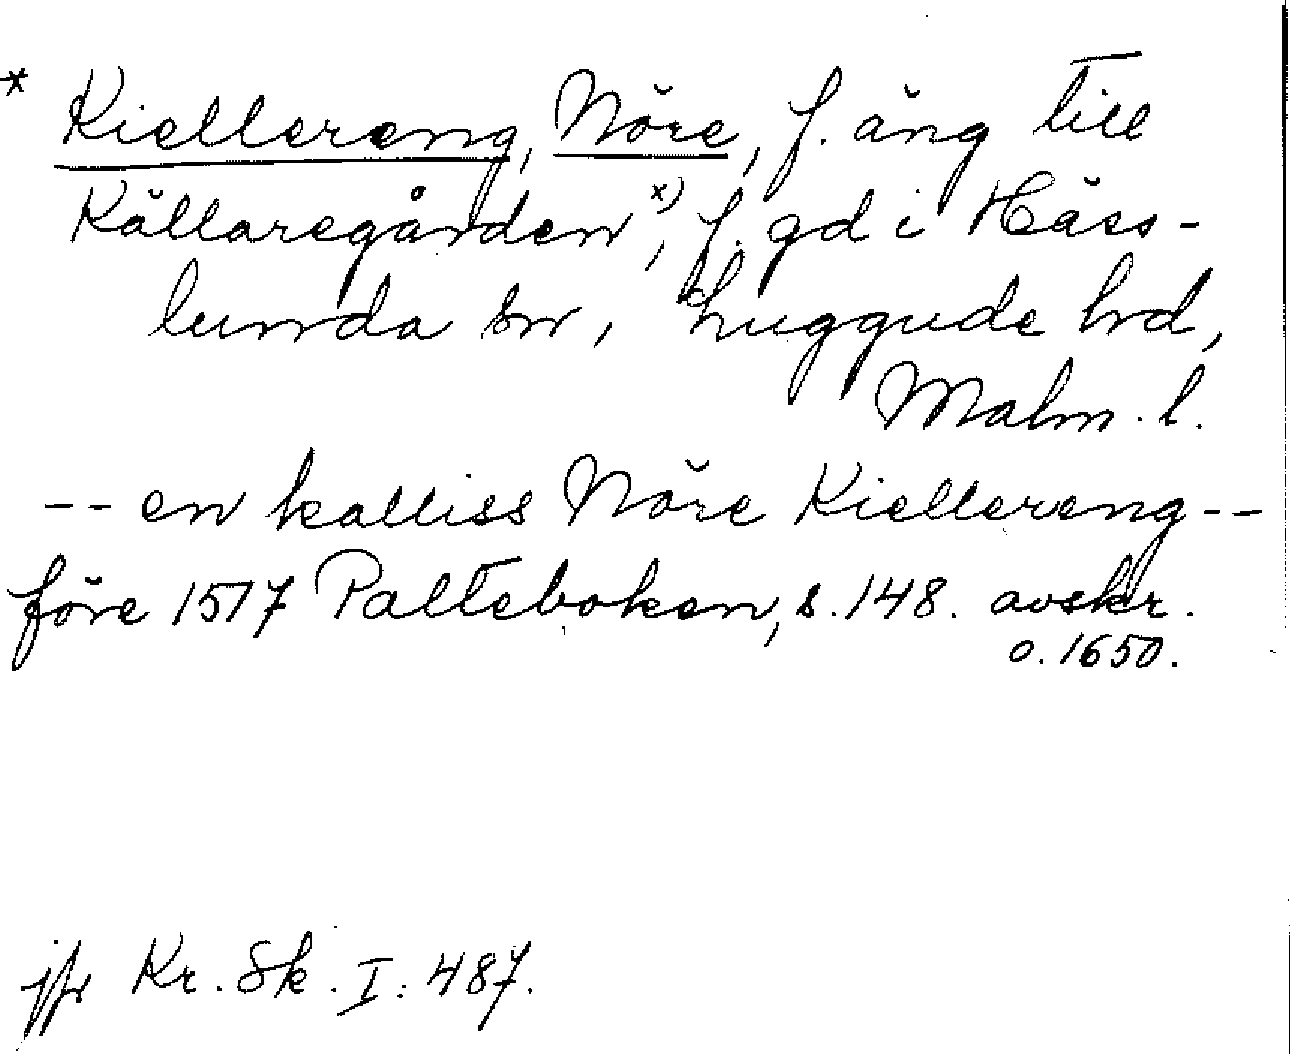 * Kiellereng, Nöre, f. äng till
Källaregården x), f. gd i Häss-
lunda sn, Luggude hd,
Malm. l.
-- en kalliss Nöre Kiellereng --
före 1517 Palteboken, s. 148. avskr.
o. 1650.
jfr Kr. Sk. I: 487.